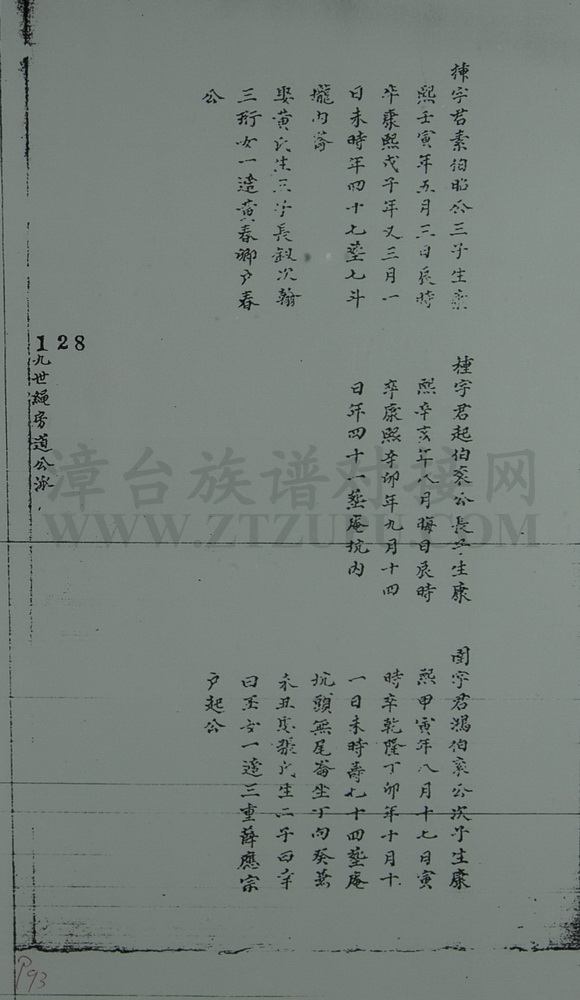 揀字君素伯昭公三子生康
熙壬寅年五月三日辰時
卒康熙戊子年又三月一
日未時年四十七塟七斗
壠內崙
娶黃氏生三子長叙次翰
三珩女一適黃春卿戶春
公
種字君起伯袞公長子生康
熙辛亥年八月晦日辰時
卒康熙辛卯年九月十四
日年四十一塟庵坑內
字君鴻伯袞公次子生康
熙甲寅年八月十七日寅
時卒乾隆丁卯年十月十
一日未時壽七十四塟庵
坑頭無尾崙坐丁向癸
未丑娶張氏生二子曰
曰玉女一適三重薛應宗
戶起公
128
九世繩房道公派
P93
漳台族谱对接网
WWW.ZTZUPU.COM